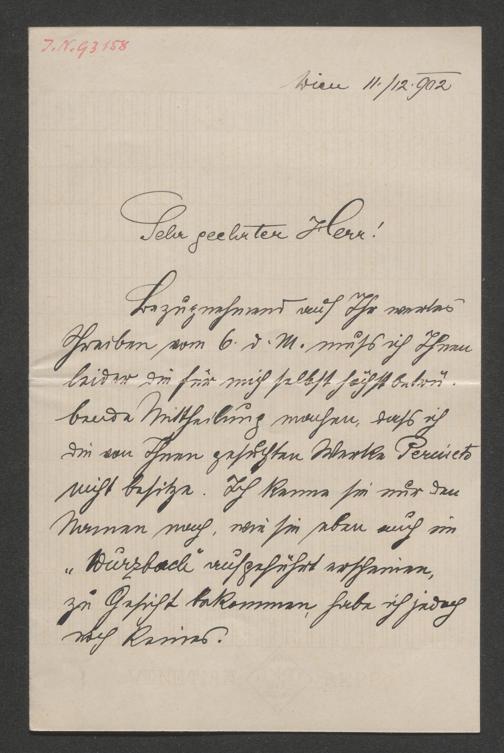 J.N. 93158
Wien 11./12. 902
Sehr geehrter Herr!
Bezugnehmend auf Ihr wertes
Schreiben vom 6. d. M. muß ich Ihnen
leider die für mich selbst höchst betrü-
bende Mittheilung machen, daß ich
die von Ihnen gesuchten Werke Perinets
nicht besitze. Ich kenne sie nur dem
Namen nach, wie sie eben auch im
„Wurzbach“ aufgeführt erscheinen,
zu Gesicht bekommen, habe ich jedoch
noch keines.